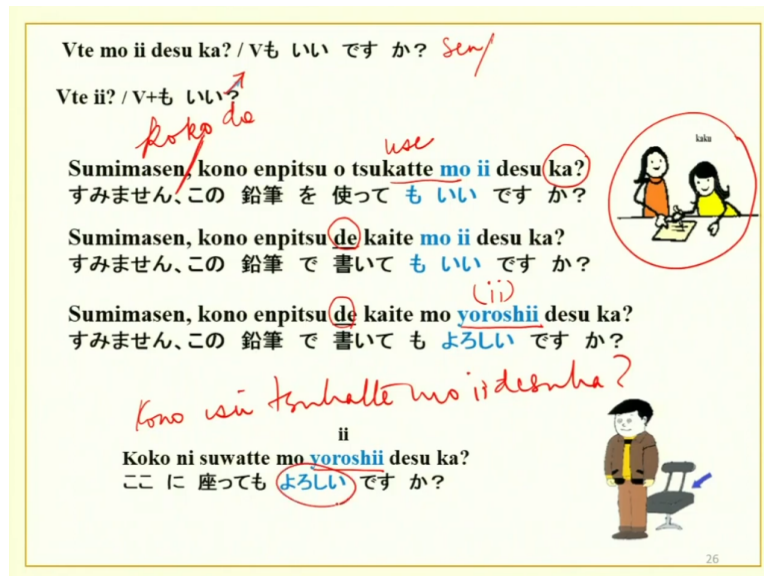 Vte mo ii desu ka? / Vも いい です か? Sen/
Vte ii? / V+も いい?
koko de
use
Sumimasen, kono enpitsu o tsukatte mo ii desu ka?
すみません、この 鉛筆 を 使って も いい です か?
kaku
Sumimasen, kono enpitsu de kaite mo ii desu ka?
すみません、この 鉛筆 で 書いて も いい です か?
(ii)
Sumimasen, kono enpitsu de kaite mo yoroshii desu ka?
すみません、この 鉛筆 で 書いて も よろしい です か?
Kono isu tsukatte mo ii desu ka?
ii
Koko ni suwatte mo yoroshii desu ka?
ここ に 座っても よろしい です か?
26